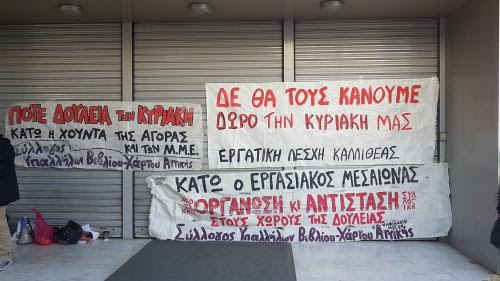 ΠΟΤΕ ΔΟΥΛΕΙΑ ΤΗΝ ΚΥΡΙΑΚΗ
ΚΑΤΩ Η ΧΟΥΝΤΑ ΤΗΣ ΑΓΟΡΑΣ
ΚΑΙ ΤΩΝ Μ.Μ.Ε.
Σύλλογος
Υπαλλήλων Βιβλίου-Χάρτου Αττικής
ΔΕ ΘΑ ΤΟΥΣ ΚΑΝΟΥΜΕ
ΔΩΡΟ ΤΗΝ ΚΥΡΙΑΚΗ ΜΑΣ
ΕΡΓΑΤΙΚΗ ΛΕΣΧΗ ΚΑΛΛΙΘΕΑΣ
ΚΑΤΩ Ο ΕΡΓΑΣΙΑΚΟΣ ΜΕΣΑΙΩΝΑΣ
ΟΡΓΑΝΩΣΗ ΚΙ ΑΝΤΙΣΤΑΣΗ
ΣΤΟΥΣ ΧΩΡΟΥΣ ΤΗΣ ΔΟΥΛΕΙΑΣ
Σύλλογος Υπαλλήλων Βιβλίου-Χάρτου Αττικής